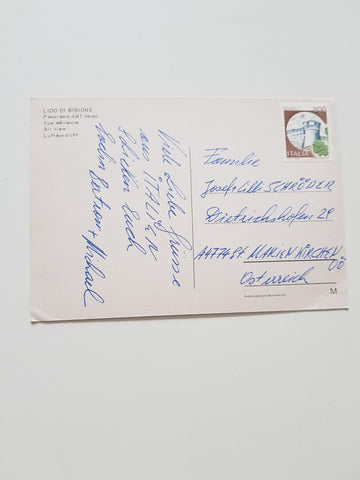 LIDO DI BIBIONE
Panorama dall'aereo
Vue aérienne
Air view
Luftansicht
Viele Liebe Grüsse
aus ITALIEN
Schicken Euch
Bertram + Michael
ITALIA
Familie
Josef + Lilli SCHRÖDER
Dietrichshofen 29
MARIENKIRCHEN
OÖ
Österreich
M